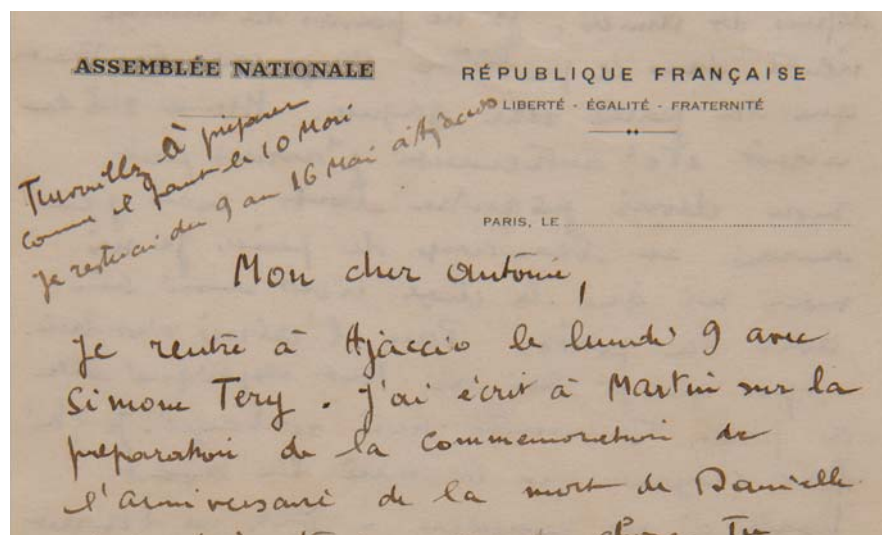 ASSEMBLÉE NATIONALE
RÉPUBLIQUE FRANÇAISE
LIBERTÉ - ÉGALITÉ - FRATERNITÉ
Travaillez à préparer
comme il faut le 10 Mai
Je resterai du 9 au 16 Mai à Ajaccio
PARIS, LE
Mon cher Antoine,
Je rentre à Ajaccio le lundi 9 avec
Simone Tery. J'ai écrit à Martin sur la
préparation de la commémoration de
l'anniversaire de la mort de Danielle